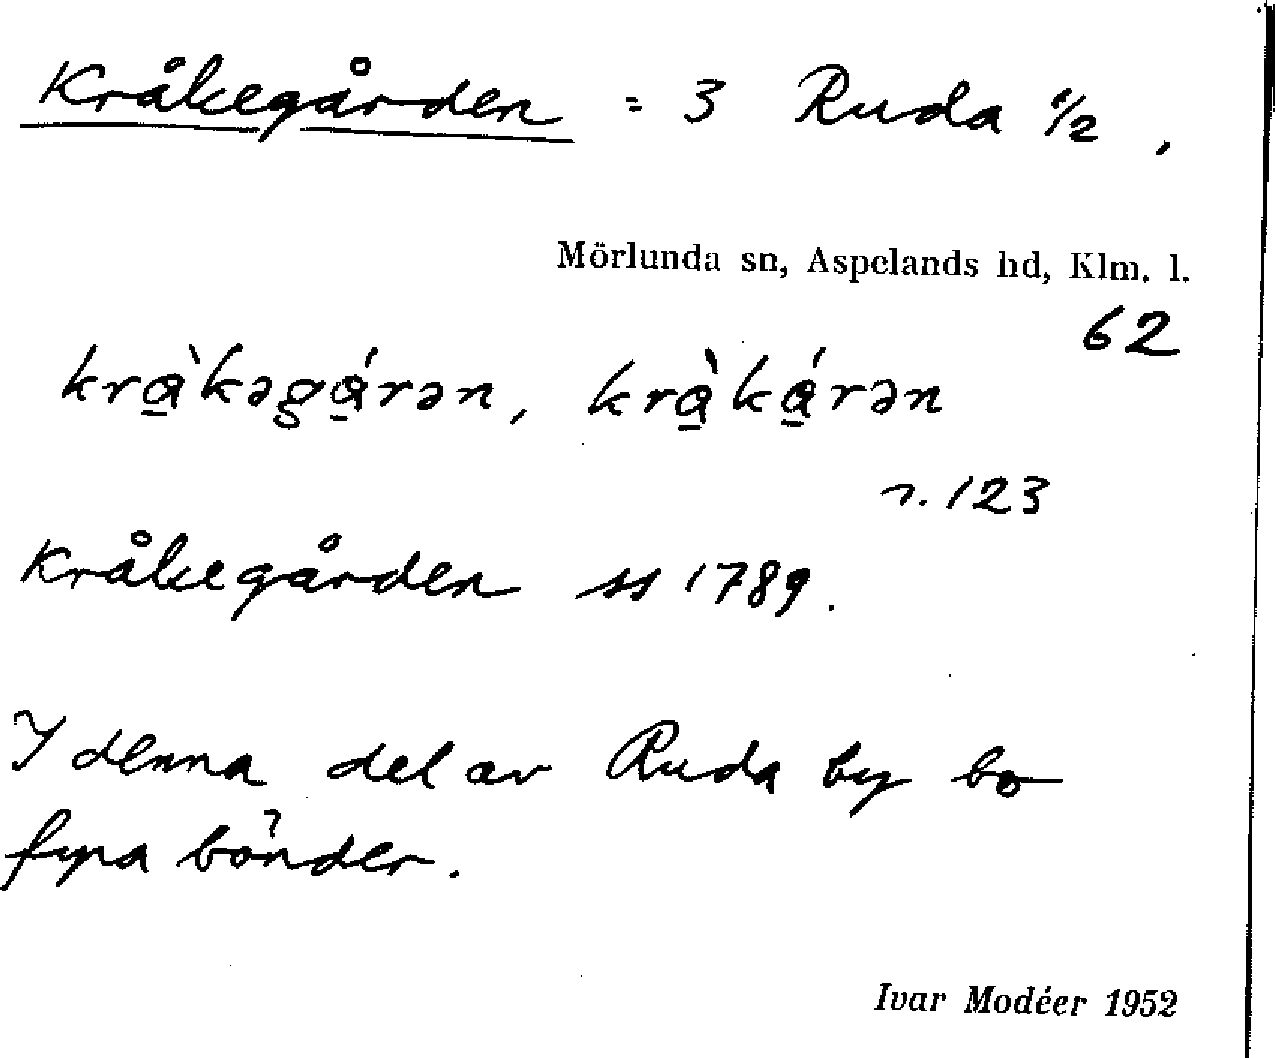 Kråkegården = 3 Ruda 1/2,
Mörlunda sn, Aspelands hd, Klm. l.
62
krὰ̱kəgά̱rən, krὰ̱kά̱rən
r. 123
Kråkegården ss 1789.
I denna del av Ruda by bo
fyra bönder.
Ivar Modéer 1952